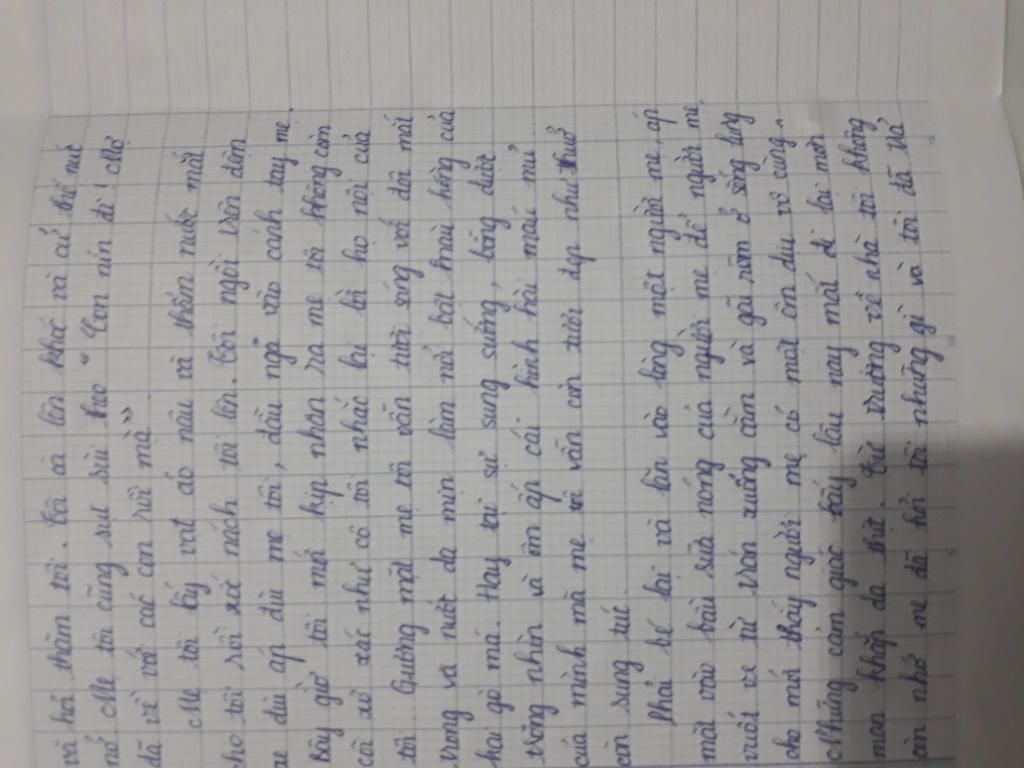 và hỏi thăm tôi. Tôi oà lên khóc và cứ thế nức
nở. Mẹ tôi cũng sụt sùi theo "Con nín đi! Mợ
đã về với các con rồi mà"
Mẹ tôi lấy vạt áo nâu và thấm nước mắt
cho tôi rồi xốc nách tôi lên. Tôi ngồi trên đệm
xe đùi áp đùi mẹ tôi, đầu ngả vào cánh tay mẹ.
Bây giờ tôi mới kịp nhận ra mẹ tôi không còn
còi xơ xác như cô tôi nhắc lại lời họ nội của
tôi. Gương mặt mẹ tôi vẫn tươi sáng với đôi mắt
trong và nước da mịn làm nổi bật màu hồng của
hai gò má. Hay tại sự sung sướng, bỗng được
trông nhìn và ôm ấp cái hình hài máu mủ
của mình mà mẹ tôi vẫn còn tươi đẹp như thuở
còn sung túc.
Phải bé lại và lăn vào lòng một người mẹ, áp
mặt vào bầu sữa nóng của người mẹ để người mẹ
vuốt ve từ trán xuống cằm và gãi rôm ở sống lưng
cho mới thấy người mẹ có một êm dịu vô cùng.
Những cảm giác bấy lâu nay mất đi lại mơn
man khắp da thịt. Từ trường về nhà tôi không
còn nhớ mẹ đã hỏi tôi những gì và tôi đã trả